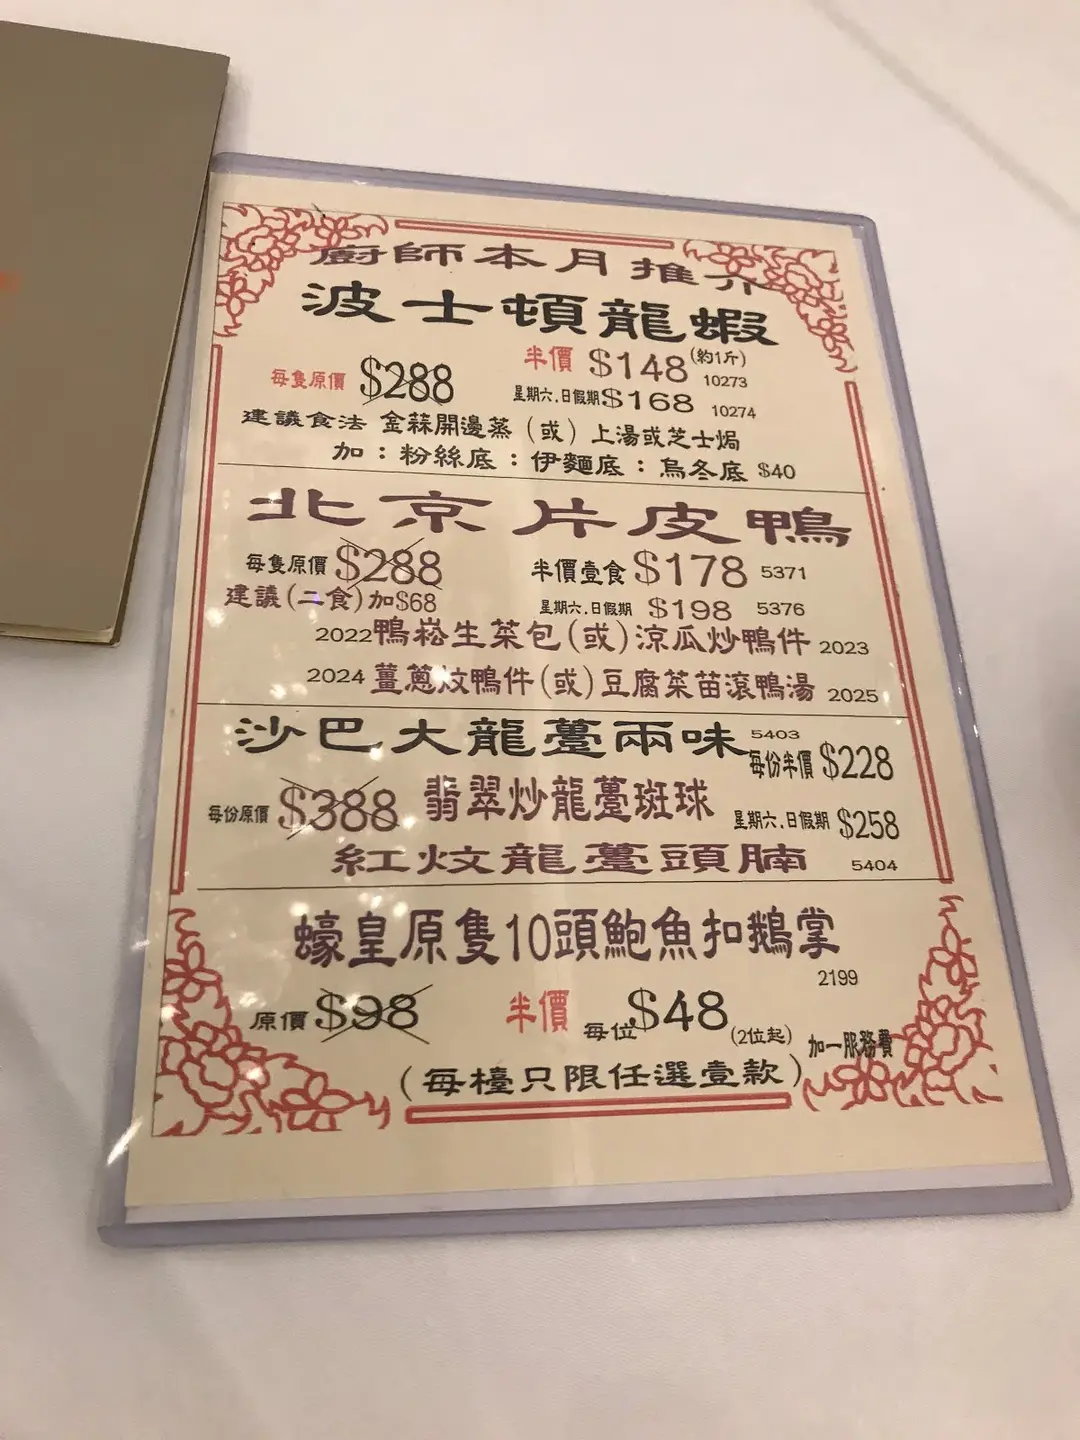 廚師本月推介
波士頓龍蝦
每隻原價 $288 半價 $148 (約1斤) 10273
星期六.日假期 $168 10274
建議食法 金蒜開邊蒸 (或) 上湯或芝士焗
加：粉絲底：伊麵底：烏冬底 $40
北京片皮鴨
每隻原價 $288 半價壹食 $178 5371
建議(二食)加$68 星期六.日假期 $198 5376
2022 鴨崧生菜包(或)涼瓜炒鴨件 2023
2024 薑蔥炆鴨件(或)豆腐菜苗滾鴨湯 2025
沙巴大龍躉兩味 5403
每份半價 $228
每份原價 $388 翡翠炒龍躉斑球 星期六.日假期 $258
紅炆龍躉頭腩 5404
蠔皇原隻10頭鮑魚扣鵝掌
2199
原價 $98 半價 每位 $48 (2位起) 加一服務費
(每檯只限任選壹款)